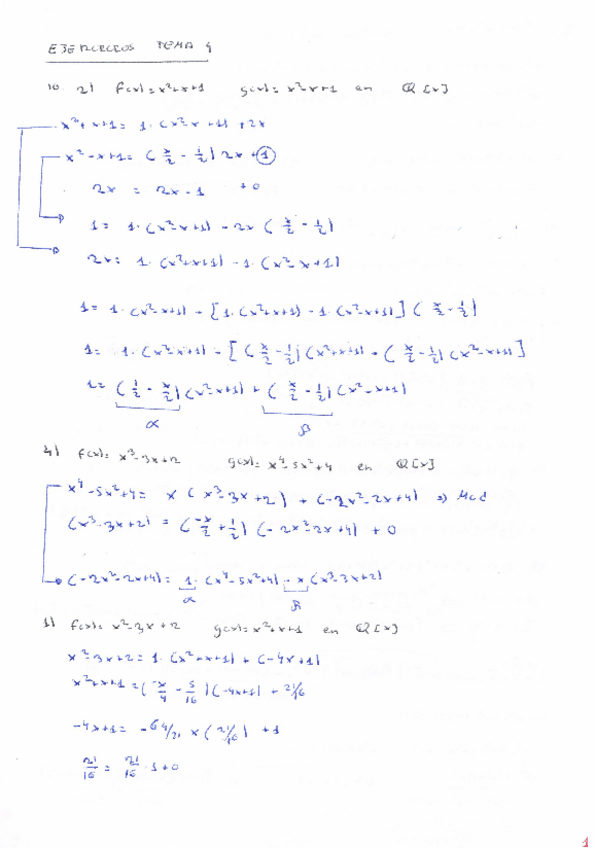 EJERCICIOS TEMA 4
10. 2) f(x)=x²+x+1 g(x)=x²-x+1 en Q[x]
x²+x+1= 1·(x²-x+1)+2x
x²-x+1= (x/2 - 1/2) 2x + 1
2x = 2x·1 +0
1= 1·(x²-x+1) - 2x (x/2 - 1/2)
2x= 1·(x²+x+1) - 1·(x²-x+1)
1= 1·(x²-x+1) - [1·(x²+x+1) - 1·(x²-x+1)] (x/2 - 1/2)
1= 1·(x²-x+1) - [(x/2 - 1/2)(x²+x+1) - (x/2 - 1/2)(x²-x+1)]
1= (1/2 - x/2)(x²+x+1) + (x/2 - 1/2)(x²-x+1)
α β
f(x)= x³-3x+2 g(x)= x⁴-5x²+4 en Q[x]
x⁴-5x²+4= x (x³-3x+2) + (-2x²-2x+4) => Mcd
(x³-3x+2) = (-x/2 + 1/2) (-2x²-2x+4) + 0
(-2x²-2x+4)= 1·(x⁴-5x²+4) - x (x³-3x+2)
α β
1) f(x)= x²-3x+2 g(x)= x²+x+1 en Q[x]
x²-3x+2= 1·(x²+x+1) + (-4x+1)
x²+x+1 = (-x/4 - 5/16)(-4x+1) + 21/16
-4x+1= -64/21 x (21/16) + 1
21/16 = 21/16 · 1+0
1